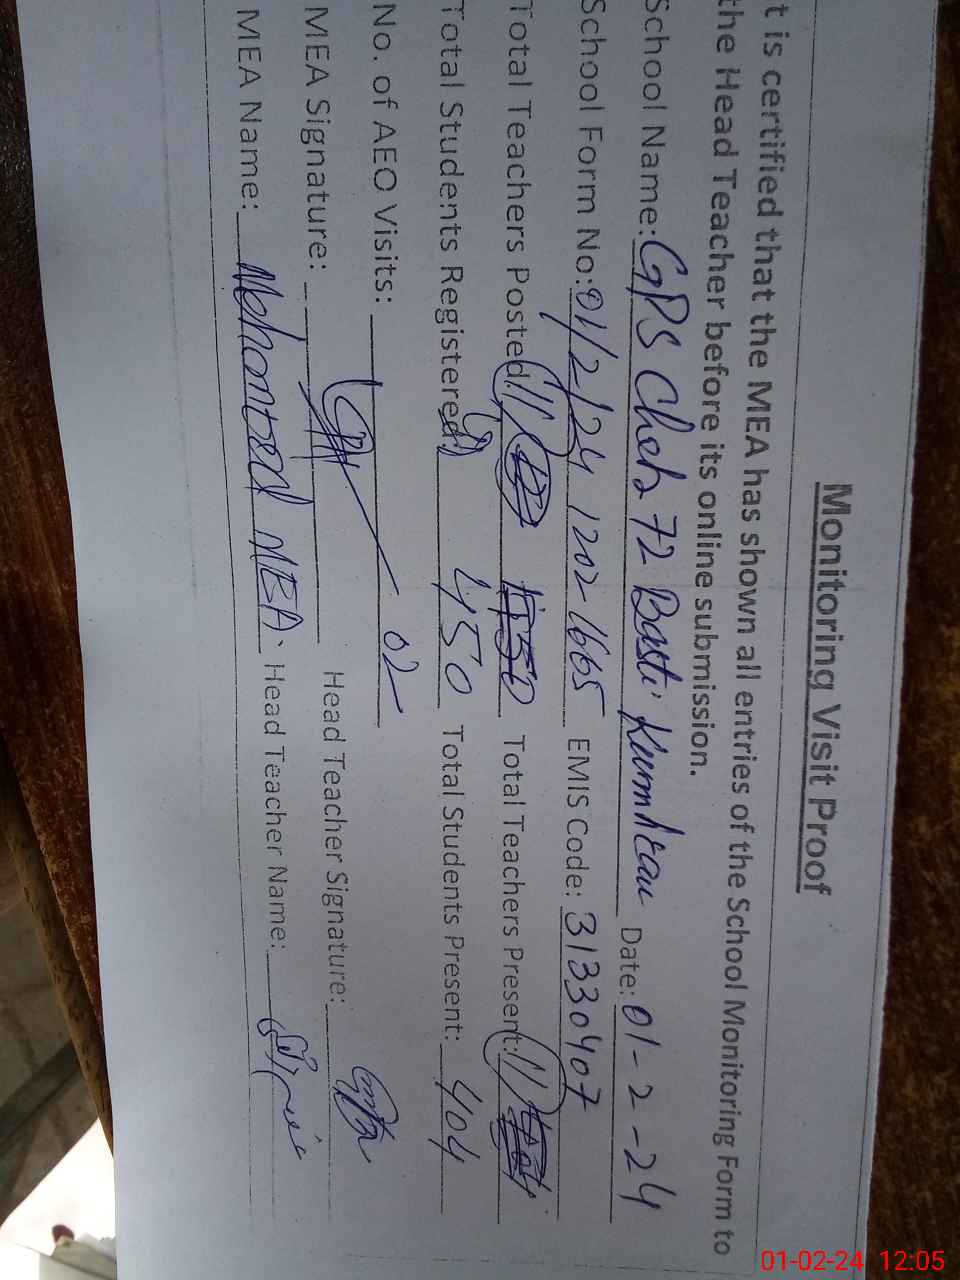 Monitoring Visit Proof
t is certified that the MEA has shown all entries of the School Monitoring Form to
the Head Teacher before its online submission.
School Name: GPS Chak 72 Basti Date: 01-2-24
School Form No: 01/2/24 1202-1665 EMIS Code: 31330407
Total Teachers Posted: 11 Total Teachers Present: 11
Total Students Registered: 450 Total Students Present: 404
No. of AEO Visits: 02
MEA Signature: Head Teacher Signature:
MEA Name: MEA Head Teacher Name:
01-02-24 12:05